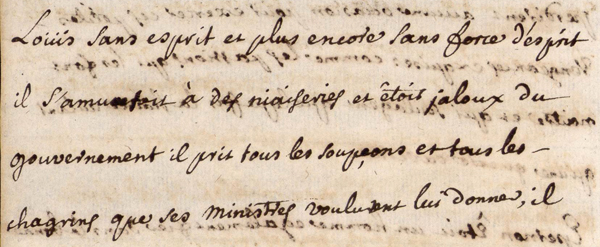 Louis sans esprit et plus encore sans force d'esprit
il s'amusoit à des niaiseries et étois jaloux du
gouvernement il prit tous les soupçons et tous les
chagrins que ses ministres voulurent lui donner, il